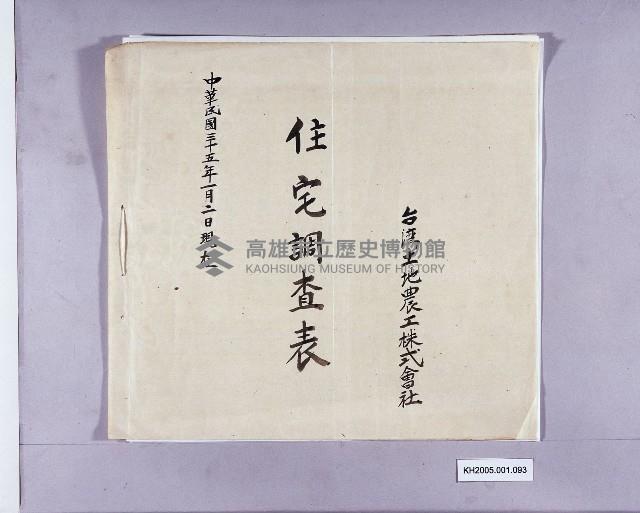 台湾土地農工株式會社
住宅調査表
中華民國三十五年一月二日現在
高雄市立歷史博物館
KAOHSIUNG MUSEUM OF HISTORY
KH2005.001.093